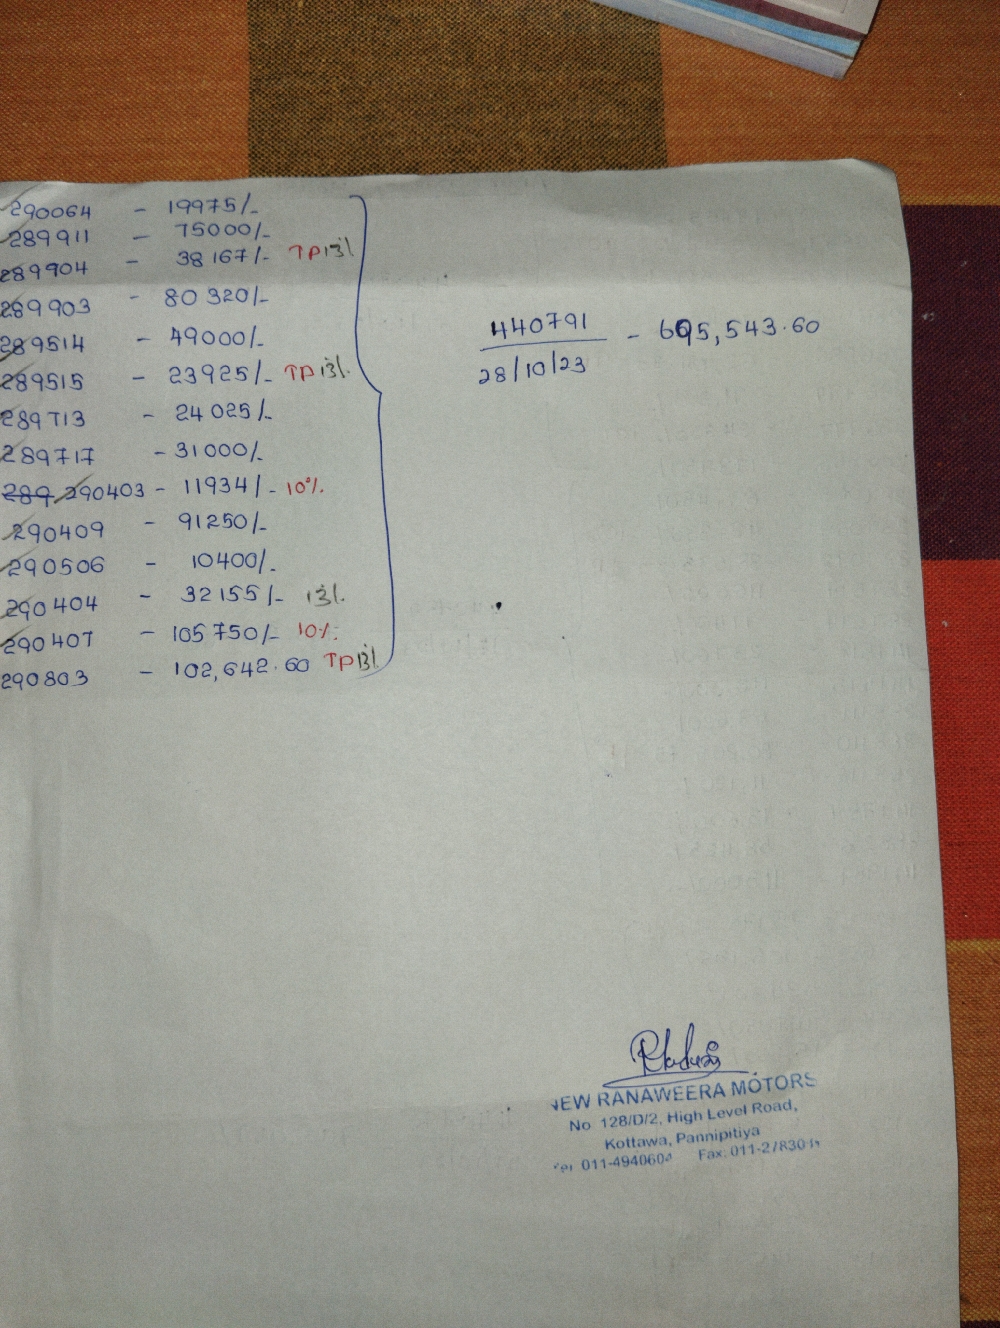 290064 - 19975/-
289911 - 75000/-
289904 - 38167/- TP 13%
289903 - 80320/-
289514 - 49000/-
289515 - 23925/- TP 13%
289713 - 24025/-
289717 - 31000/-
289 290403 - 11934/- 10%
290409 - 91250/-
290506 - 10400/-
290404 - 32155/- 13%
290407 - 105750/- 10%
290803 - 102,642.60 TP 13%
440791 - 695,543.60
28/10/23
NEW RANAWEERA MOTORS
No 128/D/2, High Level Road,
Kottawa, Pannipitiya
Tel 011-4940600 Fax: 011-27830